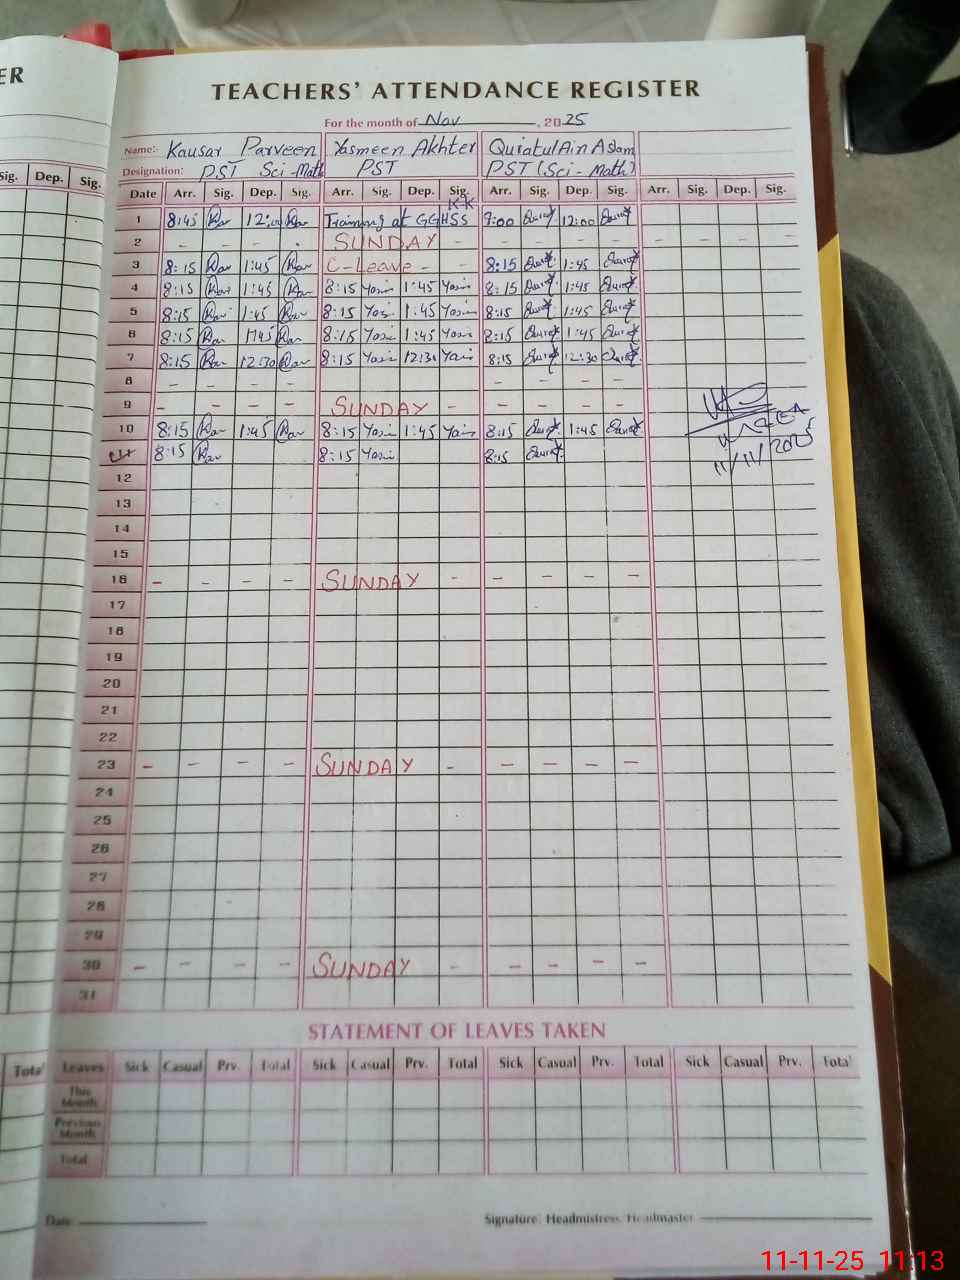 ER
TEACHERS' ATTENDANCE REGISTER
For the month of Nov , 2025
Name:- Kausar Parveen Yasmeen Akhter Quratul Ain Aslam
Designation: PST Sci-Math PST PST (Sci-Math)
Sig. Dep. Sig. Date Arr. Sig. Dep. Sig. Arr. Sig. Dep. Sig. Arr. Sig. Dep. Sig. Arr. Sig. Dep. Sig.
KK
1 8:45 12:00 Training at GGHSS 9:00 12:00
2 - - - . SUNDAY - - - - - - - - -
3 8:15 1:45 C-Leave - - 8:15 1:45
4 8:15 1:45 8:15 Yasin 1:45 Yasin 8:15 1:45
5 8:15 1:45 8:15 Yasin 1:45 Yasin 8:15 1:45
6 8:15 1:45 8:15 Yasin 1:45 Yasin 8:15 1:45
7 8:15 12:30 8:15 Yasin 12:30 Yasin 8:15 12:30
8 - - - - - - - -
9 - - - - SUNDAY - - - - -
10 8:15 1:45 8:15 Yasin 1:45 Yasin 8:15 1:45
11 8:15 8:15 Yasin 8:15
11/11/2025
12
13
14
15
16 - - - - SUNDAY - - - - -
17
18
19
20
21
22
23 - - - - SUNDAY - - - - -
24
25
26
27
28
29
30 - - - - SUNDAY - - - - -
31
STATEMENT OF LEAVES TAKEN
Total Leaves Sick Casual Prv. Total Sick Casual Prv. Total Sick Casual Prv. Total Sick Casual Prv. Total
This
Month
Previous
Month
Total
Date Signature: Headmistress/Headmaster
11-11-25 11:13